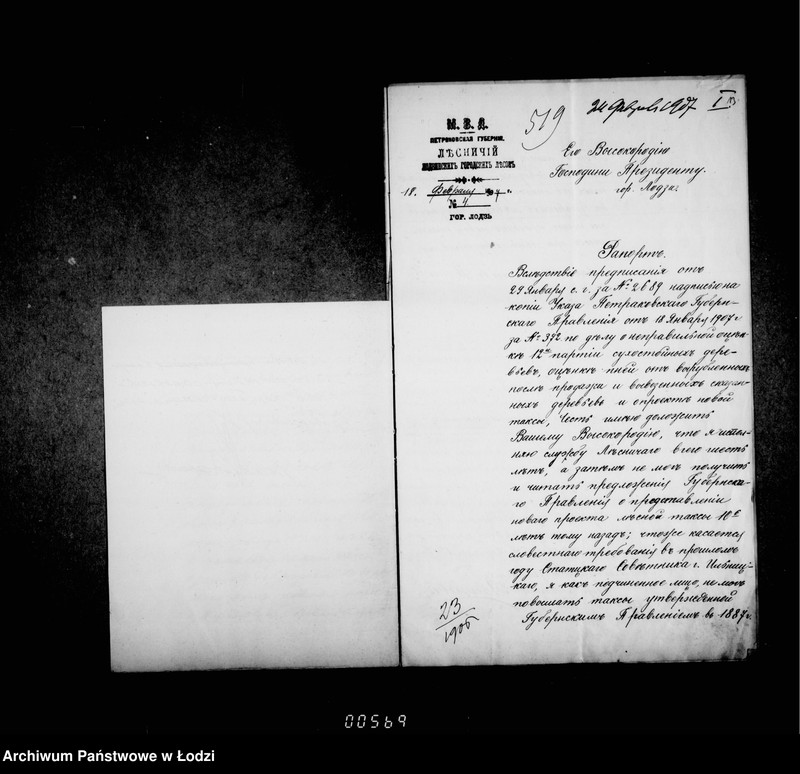 519
24 февраля 1907
I
М. В. Д.
ПЕТРОКОВСКАЯ ГУБЕРНІЯ.
ЛѢСНИЧІЙ
ЛОДЗИНСКИХЪ ГОРОДСКИХЪ ЛѢСОВЪ
18. Февраля 1907 г.
№ 4
ГОР. ЛОДЗЬ
Его Высокородію
Господину Президенту.
гор. Лодзи.
Рапортъ.
Вслѣдствіе предписанія отъ
29 Января с. г. за № 2689 надписью на
копіи Указа Петраковскаго Губерн-
скаго Правленія отъ 18 Января 1907 г
за № 372 по дѣлу о неправильной оцѣн-
кѣ 12ти партіи сухостойныхъ дере-
вьевъ, оцѣнкѣ пней отъ вырубленныхъ
послѣ продажи и вывезенныхъ сказан-
ныхъ деревьевъ и о проектѣ новой
таксы, Честь имѣю доложить
Вашему Высокородію, что я испол-
няю службу Лѣсничаго всего шесть
лѣтъ, а затѣмъ не могъ получить
и читать предложенія Губернска-
го Правленія о представленіи
новаго проекта лѣсной таксы 10ть
лѣтъ тому назадъ; чтоже касается
словестнаго требованія въ прошломъ
году Статскаго Совѣтника г.
каго, я какъ подчиненное лицо, не могъ
повышать таксы утвержденной
Губернскимъ Правленіемъ въ 1887 г.
23/1906
00569
Archiwum Państwowe w Łodzi